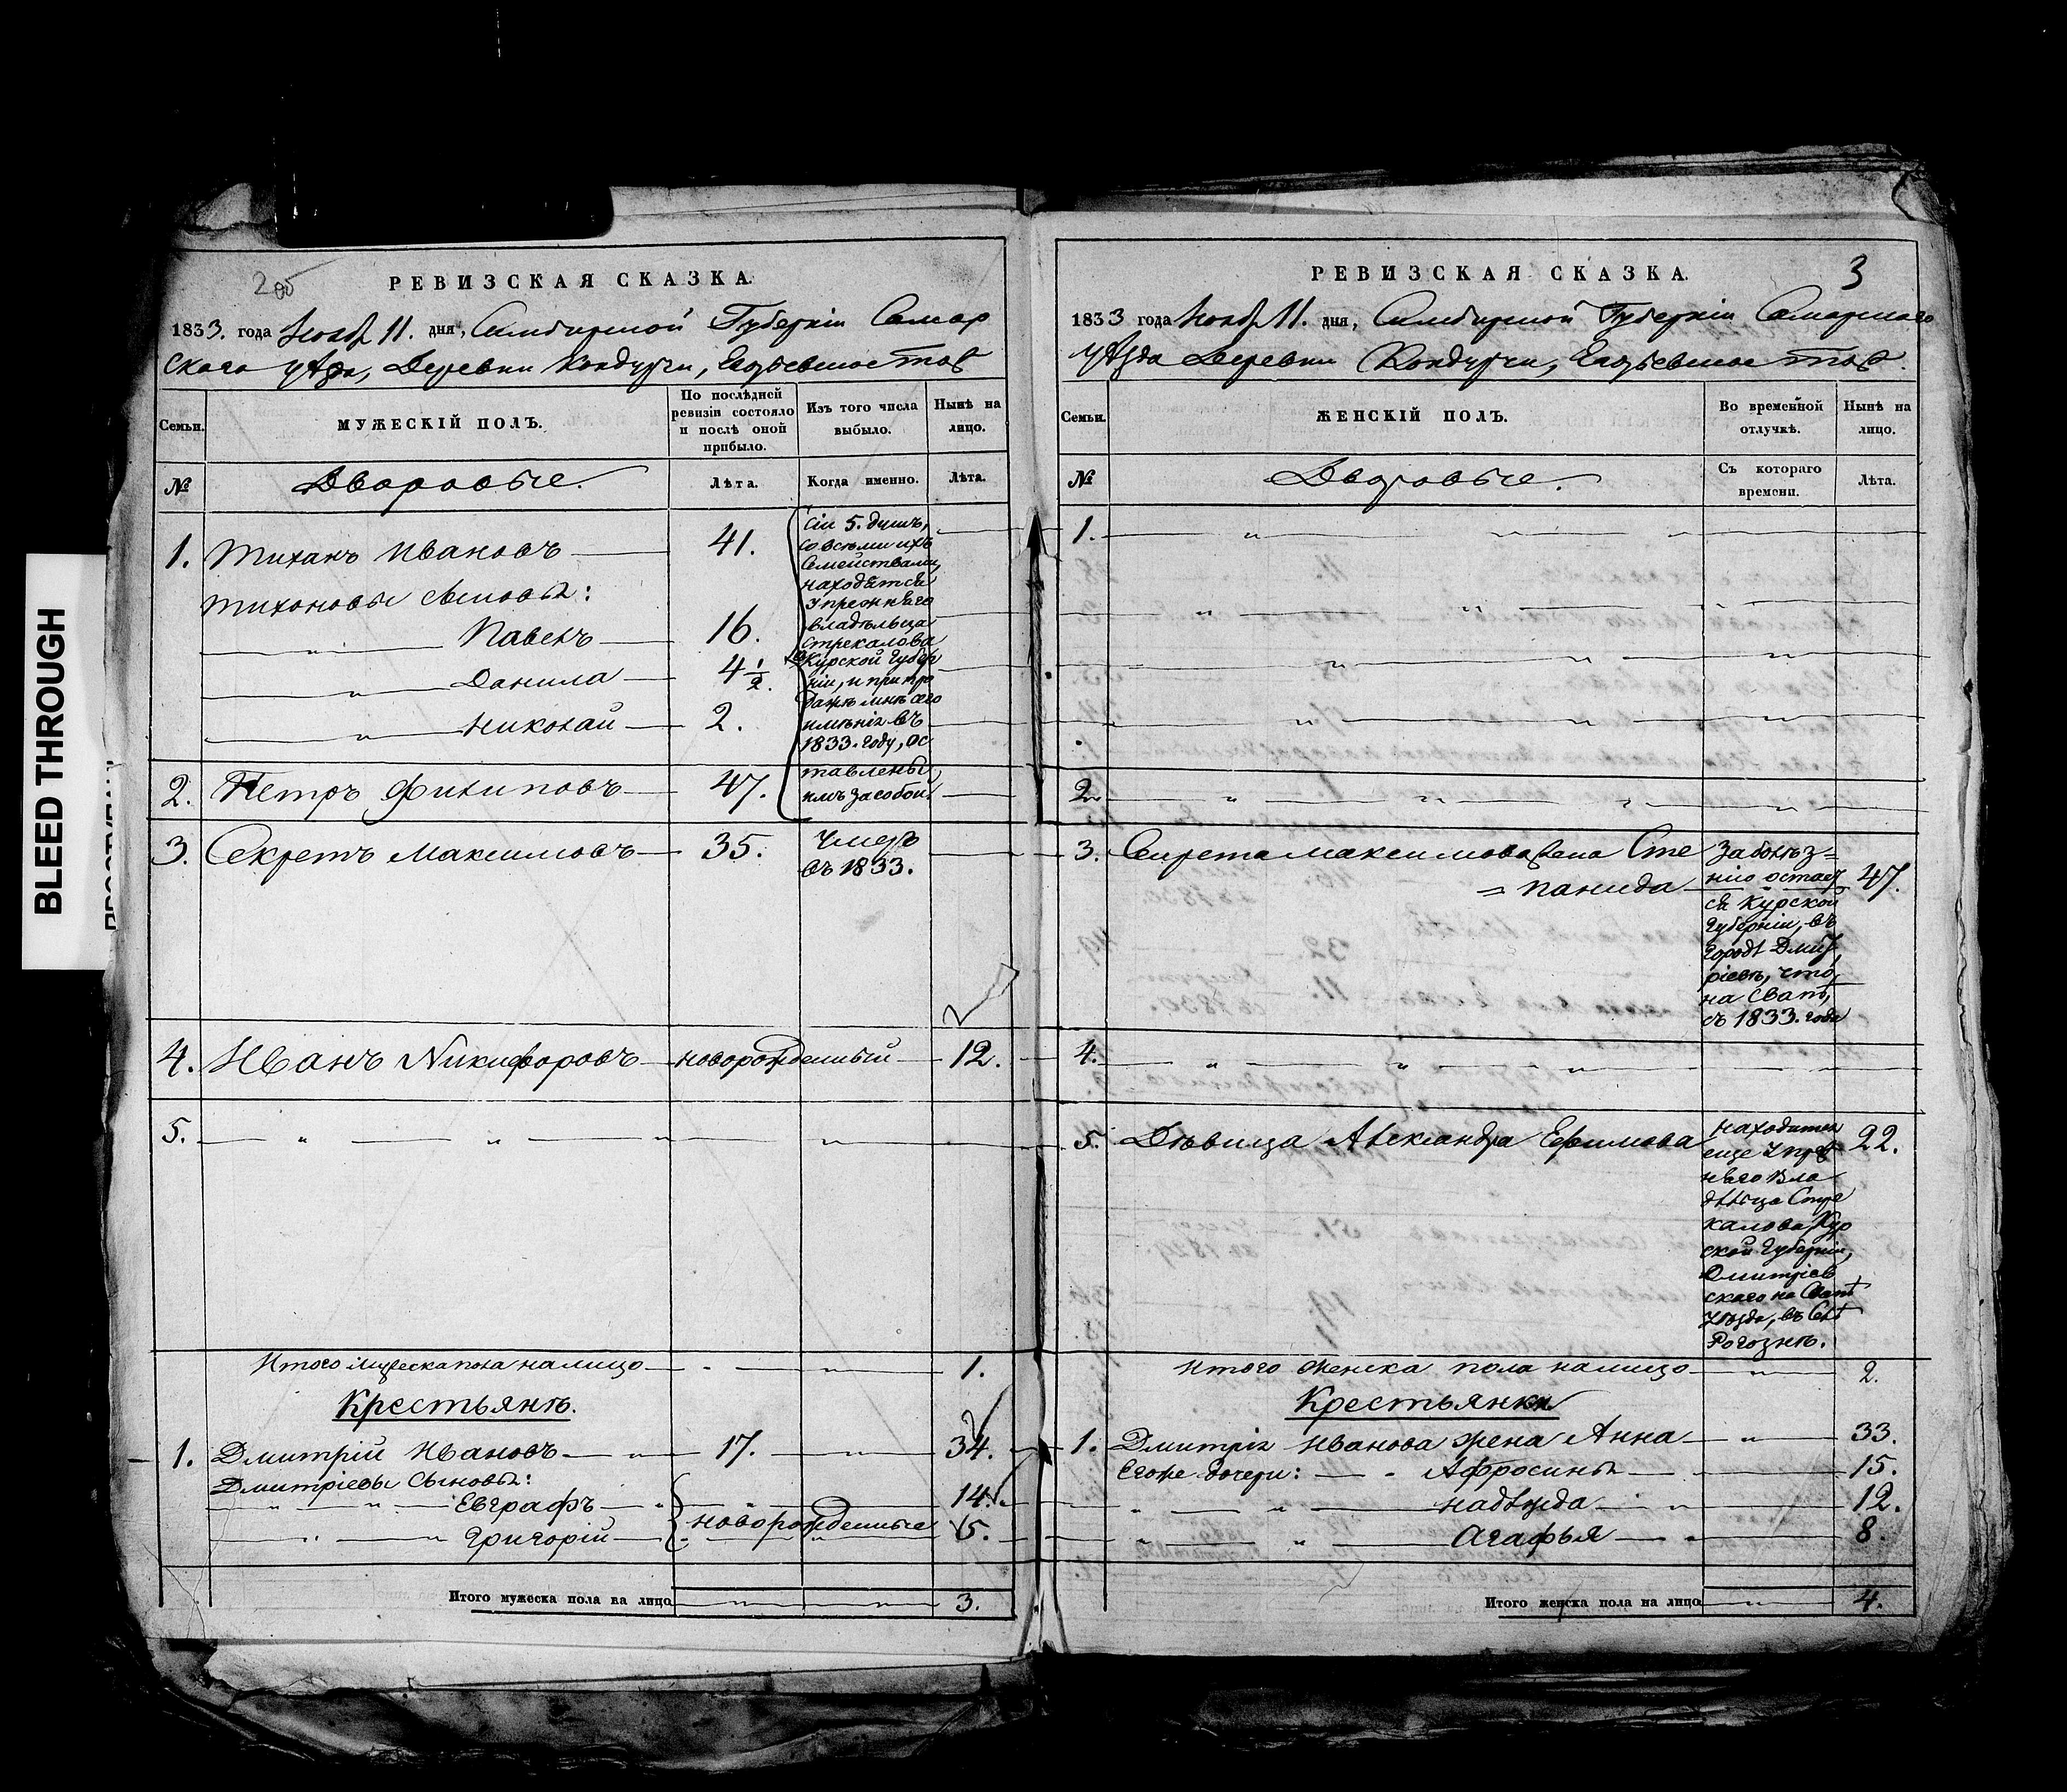 BLEED THROUGH
РЕВИЗСКАЯ СКАЗКА.
1833. года Нояб 11. дня, Симбирской Губерніи Самар
скаго уѣзда, Деревни Кондурчи,
Семьи.
МУЖЕСКІЙ ПОЛЪ.
По послѣдней
ревизіи состояло
и послѣ оной
прибыло.
Изъ того числа
выбыло.
Нынѣ на
лицо.
№
Дворовые.
Лѣта.
Когда именно.
Лѣта.
1. Тиханъ Ивановъ 41.
Тихоновы сыновья:
" Павелъ 16.
" Данила 4 1/2.
" Николай 2.
2. Петръ Филиповъ 47.
сіи 5. душъ,
со всѣми ихъ
Семействами,
находятся
у прежняго
владѣльца
Стрекалова
Курской Губер
ніи, и при про
дажѣ мнѣ сего
имѣнія въ
1833. году, ос
тавлены
имъ за собой.
3. Секретъ Максимовъ 35. Умеръ
въ 1833.
4. Иванъ Никифоровъ новорожденный 12.
5. " " " "
Итого мужеска пола налицо " " 1.
Крестьянѣ.
1. Дмитрій Ивановъ " 17. " 34.
Дмитріевы Сыновья:
" " Евграфъ " " 14.
" " Григорій новорожденные 5.
Итого мужеска пола на лицо " " 3.
РЕВИЗСКАЯ СКАЗКА.
3
1833 года Нояб 11. дня, Симбирской Губерніи Самарскаго
уѣзда Деревни Кондурчи,
Семьи.
ЖЕНСКІЙ ПОЛЪ.
Во временной
отлучкѣ.
Нынѣ на
лицо.
№
Дворовые.
Съ котораго
времени.
Лѣта.
1. " " "
" " "
" " "
" " "
2. " " " "
3. Секрета Максимова жена Сте
= панида 47.
За болѣз=
нію остает
ся Курской
Губерніи, въ
городѣ Дмит
ріевѣ, что
на Свапѣ,
съ 1833. года
4. " " " "
5. Дѣвица Александра Ефимова 22.
находится
еще у преж
няго вла
дѣльца Стре
калова Кур
ской Губерніи,
Дмитріев
скаго на Свапѣ
уѣзда, въ Селѣ
Рогознѣ.
Итого женска пола налицо " 2.
Крестьянки
1. Дмитрія Иванова жена Анна " 33.
Егоже дочери: " Афросинья 15.
" " Надѣжда " 12.
" " Агафья " 8.
Итого женска пола на лицо " 4.